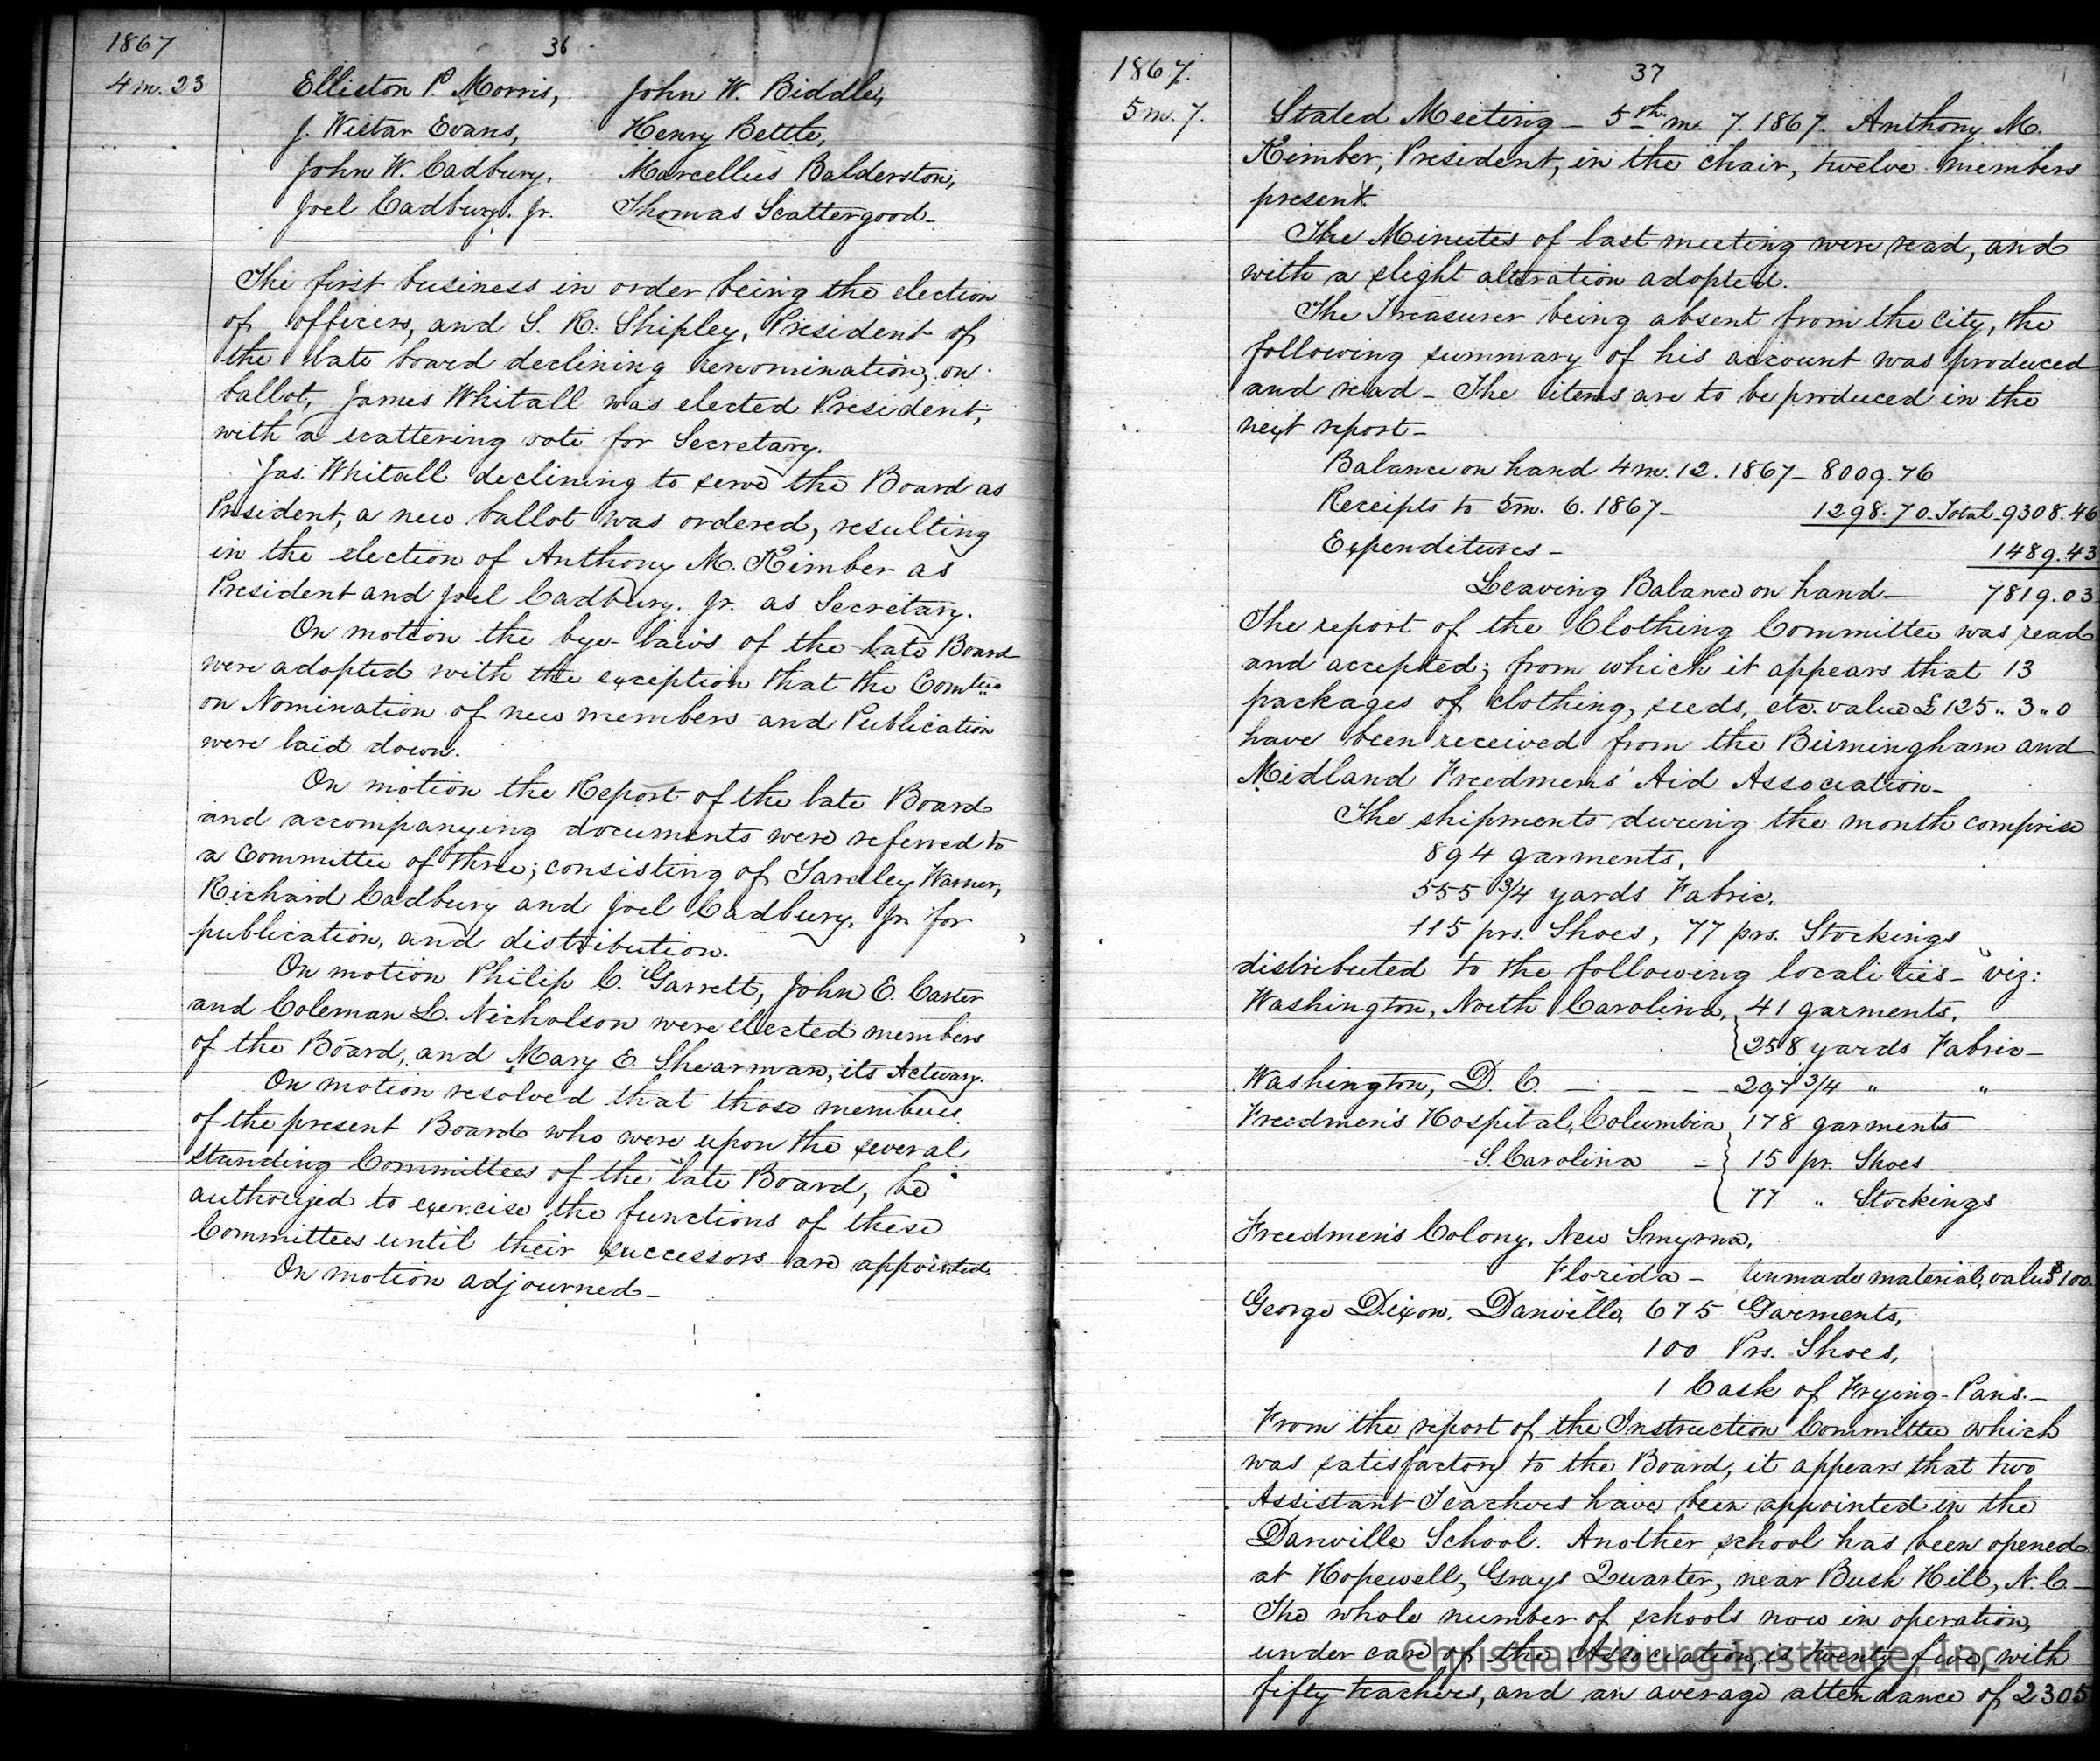 1867
36
4 m. 23
Elliston P. Morris, John W. Biddle,
J. Wistar Evans, Henry Bettle,
John W. Cadbury. Marcellus Balderston,
Joel Cadbury. Jr. Thomas Scattergood-
The first business in order being the election
of officers, and S. R. Shipley, President of
the late board declining renomination, on
ballot, James Whitall was elected President,
with a scattering vote for Secretary.
Jas. Whitall declining to serve the Board as
President, a new ballot was ordered, resulting
in the election of Anthony M. Kimber as
President and Joel Cadbury. Jr. as Secretary.
On motion the bye-laws of the late Board
were adopted with the exception that the Comtees
on Nomination of new members and Publication
were laid down.
On motion the Report of the late Board
and accompanying documents were referred to
a Committee of three; consisting of Yardley Warner,
Richard Cadbury and Joel Cadbury. Jr. for
publication, and distribution.
On motion Philip C. Garrett, John E. Carter
and Coleman L. Nicholson were elected members
of the Board, and Mary E. Shearman, its Actuary.
On motion resolved that those members
of the present Board who were upon the several
standing Committees of the late Board, be
authorized to exercise the functions of these
Committees until their successors are appointed.
On motion adjourned-
1867.
37
5 m. 7.
Stated Meeting - 5th m. 7. 1867. Anthony M.
Kimber, President, in the chair, twelve members
present.
The Minutes of last meeting were read, and
with a slight alteration adopted.
The Treasurer being absent from the city, the
following summary of his account was produced
and read - The items are to be produced in the
next report-
Balance on hand 4 m. 12. 1867- 8009.76
Receipts to 5m. 6. 1867- 1298.70. Total-9308.46
Expenditures- 1489.43
Leaving Balance on hand- 7819.03
The report of the Clothing Committee was read
and accepted; from which it appears that 13
packages of clothing, seeds, etc. value £125.. 3..0
have been received from the Birmingham and
Midland Freedmens' Aid Association-
The shipments during the month comprise
894 garments,
555 3/4 yards Fabric,
115 prs. Shoes, 77 prs. Stockings
distributed to the following localities- viz:
Washington, North Carolina, 41 garments,
258 yards Fabric-
Washington, D. C. - - - 297 3/4 " "
Freedmen's Hospital, Columbia 178 garments
S. Carolina - 15 pr. Shoes
77 " Stockings
Freedmen's Colony, New Smyrna,
Florida - Unmade material, value $100.
George Dixon, Danville, 675 Garments,
100 Prs. Shoes,
1 Cask of Frying-Pans.-
From the report of the Instruction Committee which
was satisfactory to the Board, it appears that two
Assistant Teachers have been appointed in the
Danville School. Another school has been opened
at Hopewell, Grays Quarter, near Bush Hill, N. C.-
The whole number of schools now in operation,
under care of the Association, is twenty five, with
fifty teachers, and an average attendance of 2305
Christiansburg Institute, Inc